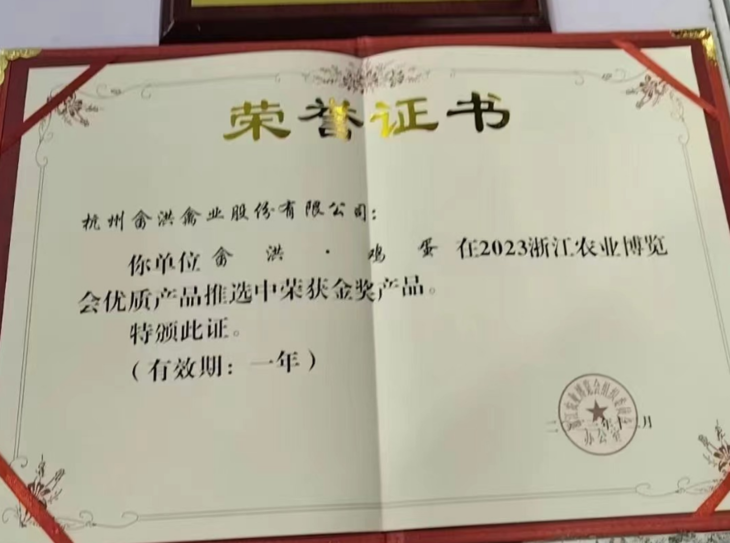 荣誉证书
杭州畲洪禽业股份有限公司：
你单位畲洪·鸡蛋在2023浙江农业博览
会优质产品推选中荣获金奖产品。
特颁此证。
（有效期：一年）
浙江农业博览会组织委员会
办公室